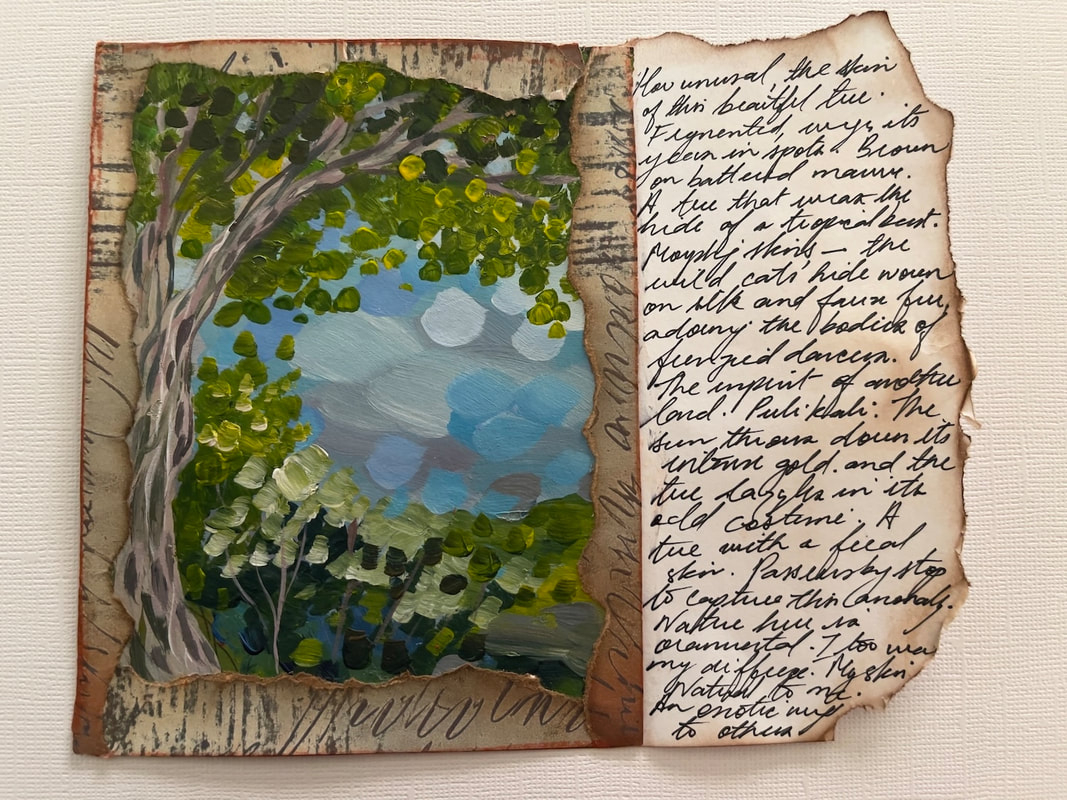 How unusal, the skin
of this beautful tree.
Figmented, wings its
in spots. Brown
on battered mauve.
A tree that wears the
hide of a tropical beast.
skins — the
wild cats' hide woven
on silk and faux fur,
adorning the bodies of
frenzied dancers.
The imprint of another
land. Puli Kali. The
sun throws down its
intense gold. and the
tree laughs in its
odd costume. A
tree with a feral
skin. Passersby stop
to capture this anomaly.
Nature here is
ornamental. I too wear
my difference. My skin
Natural to me.
An exotic
to others